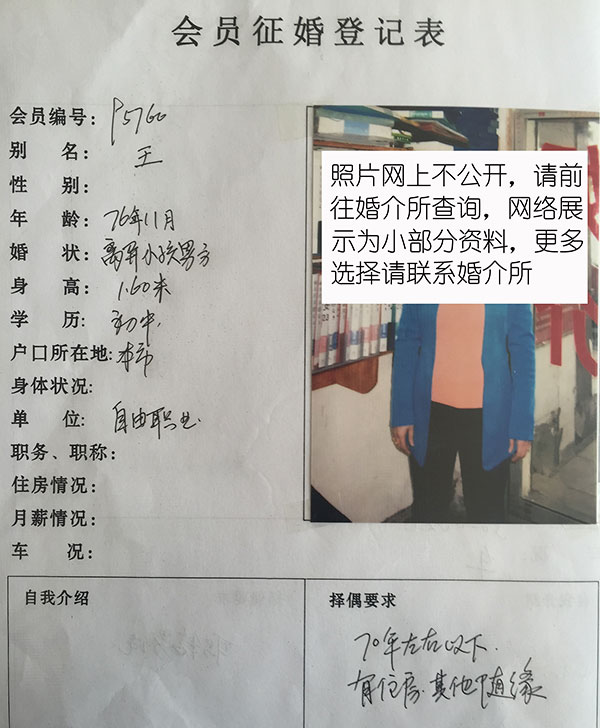 会员征婚登记表
会员编号: P5760
别 名: 王
性 别:
年 龄: 76年11月
婚 状: 离异小孩男方
身 高: 1.60米
学 历: 初中.
户口所在地: 本市
身体状况:
单 位: 自由职业
职务、职称:
住房情况:
月薪情况:
车 况:
照片网上不公开，请前
往婚介所查询，网络展
示为小部分资料，更多
选择请联系婚介所
自我介绍
择偶要求
70年左右以下.
有住房.其他随缘